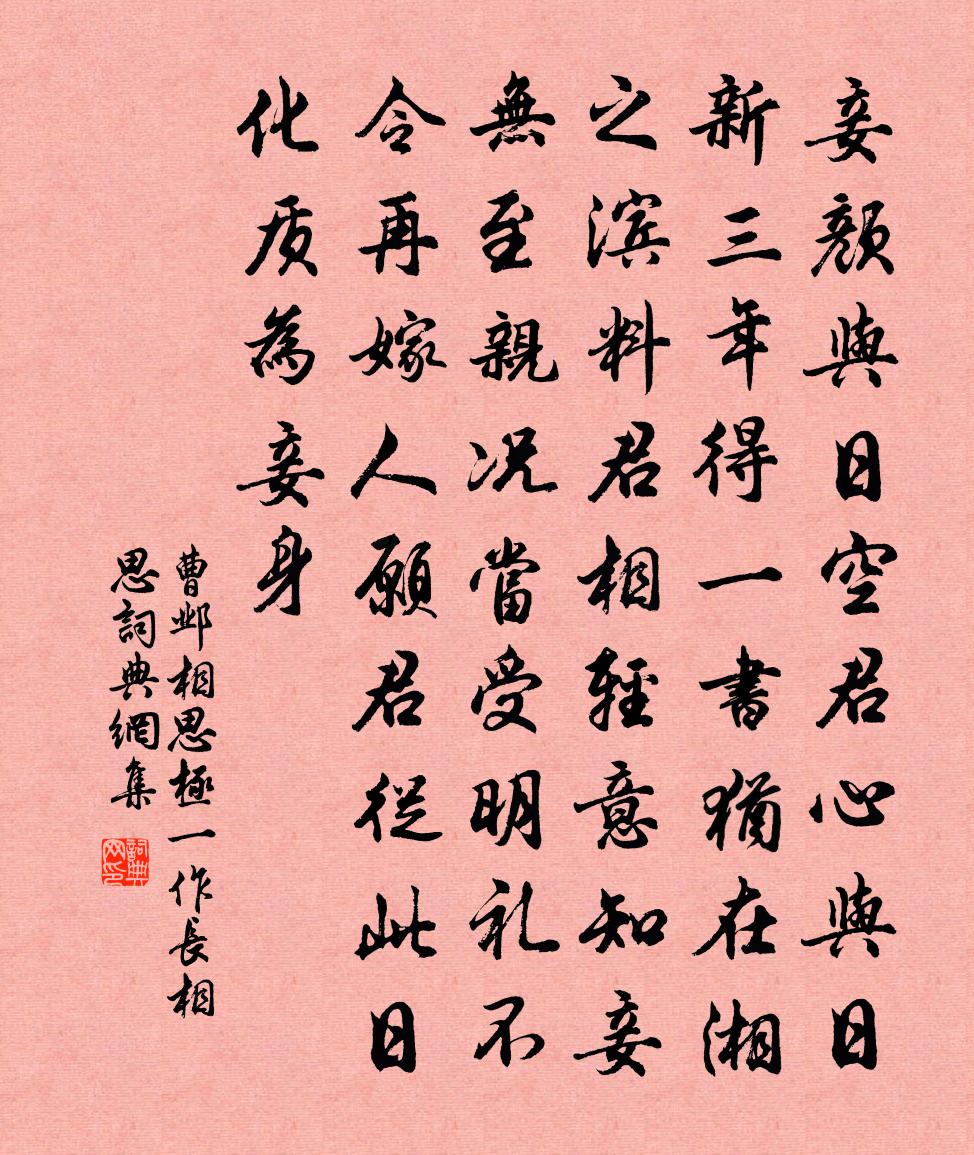 妾颜與日空君心與日
新三年得一書猶在湘
之滨料君相輕意知妾
無至親况當受明礼不
令再嫁人願君從此日
化质為妾身
曹邺相思極一作長相
思詞典網集
詞典网印